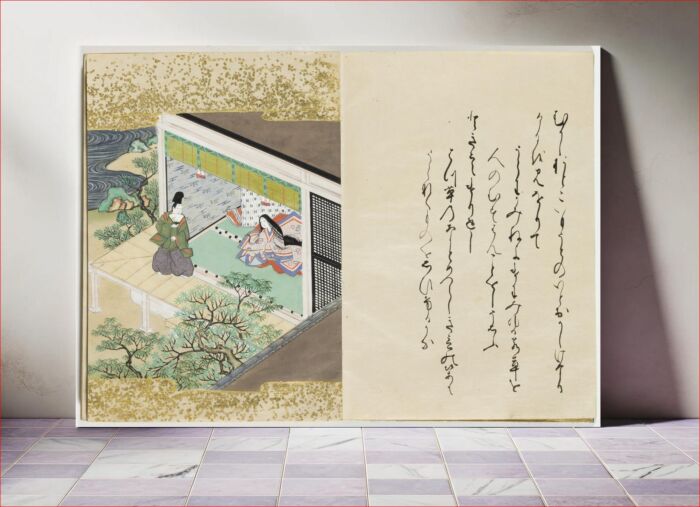 むかしおとこいもうとのいとおかしけな
りけるを見をりて
うらわかみねよけにみゆるわか草を
人のむすはんことをしそおもふ
ときこえけり返し
はつ草のなとめつらしきことのはそ
うらなくものをおもひけるかな